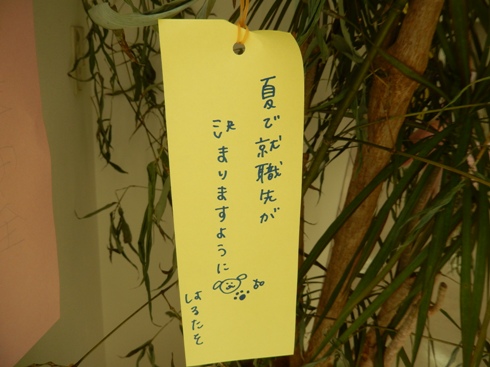 夏で就職先が
決まりますように
はるたそ